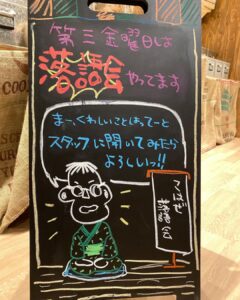 第三金曜日は
落語会
やってます
まー、くわしいことはってーと
スタッフに聞いてみたら
よろしいっ!!
落語会